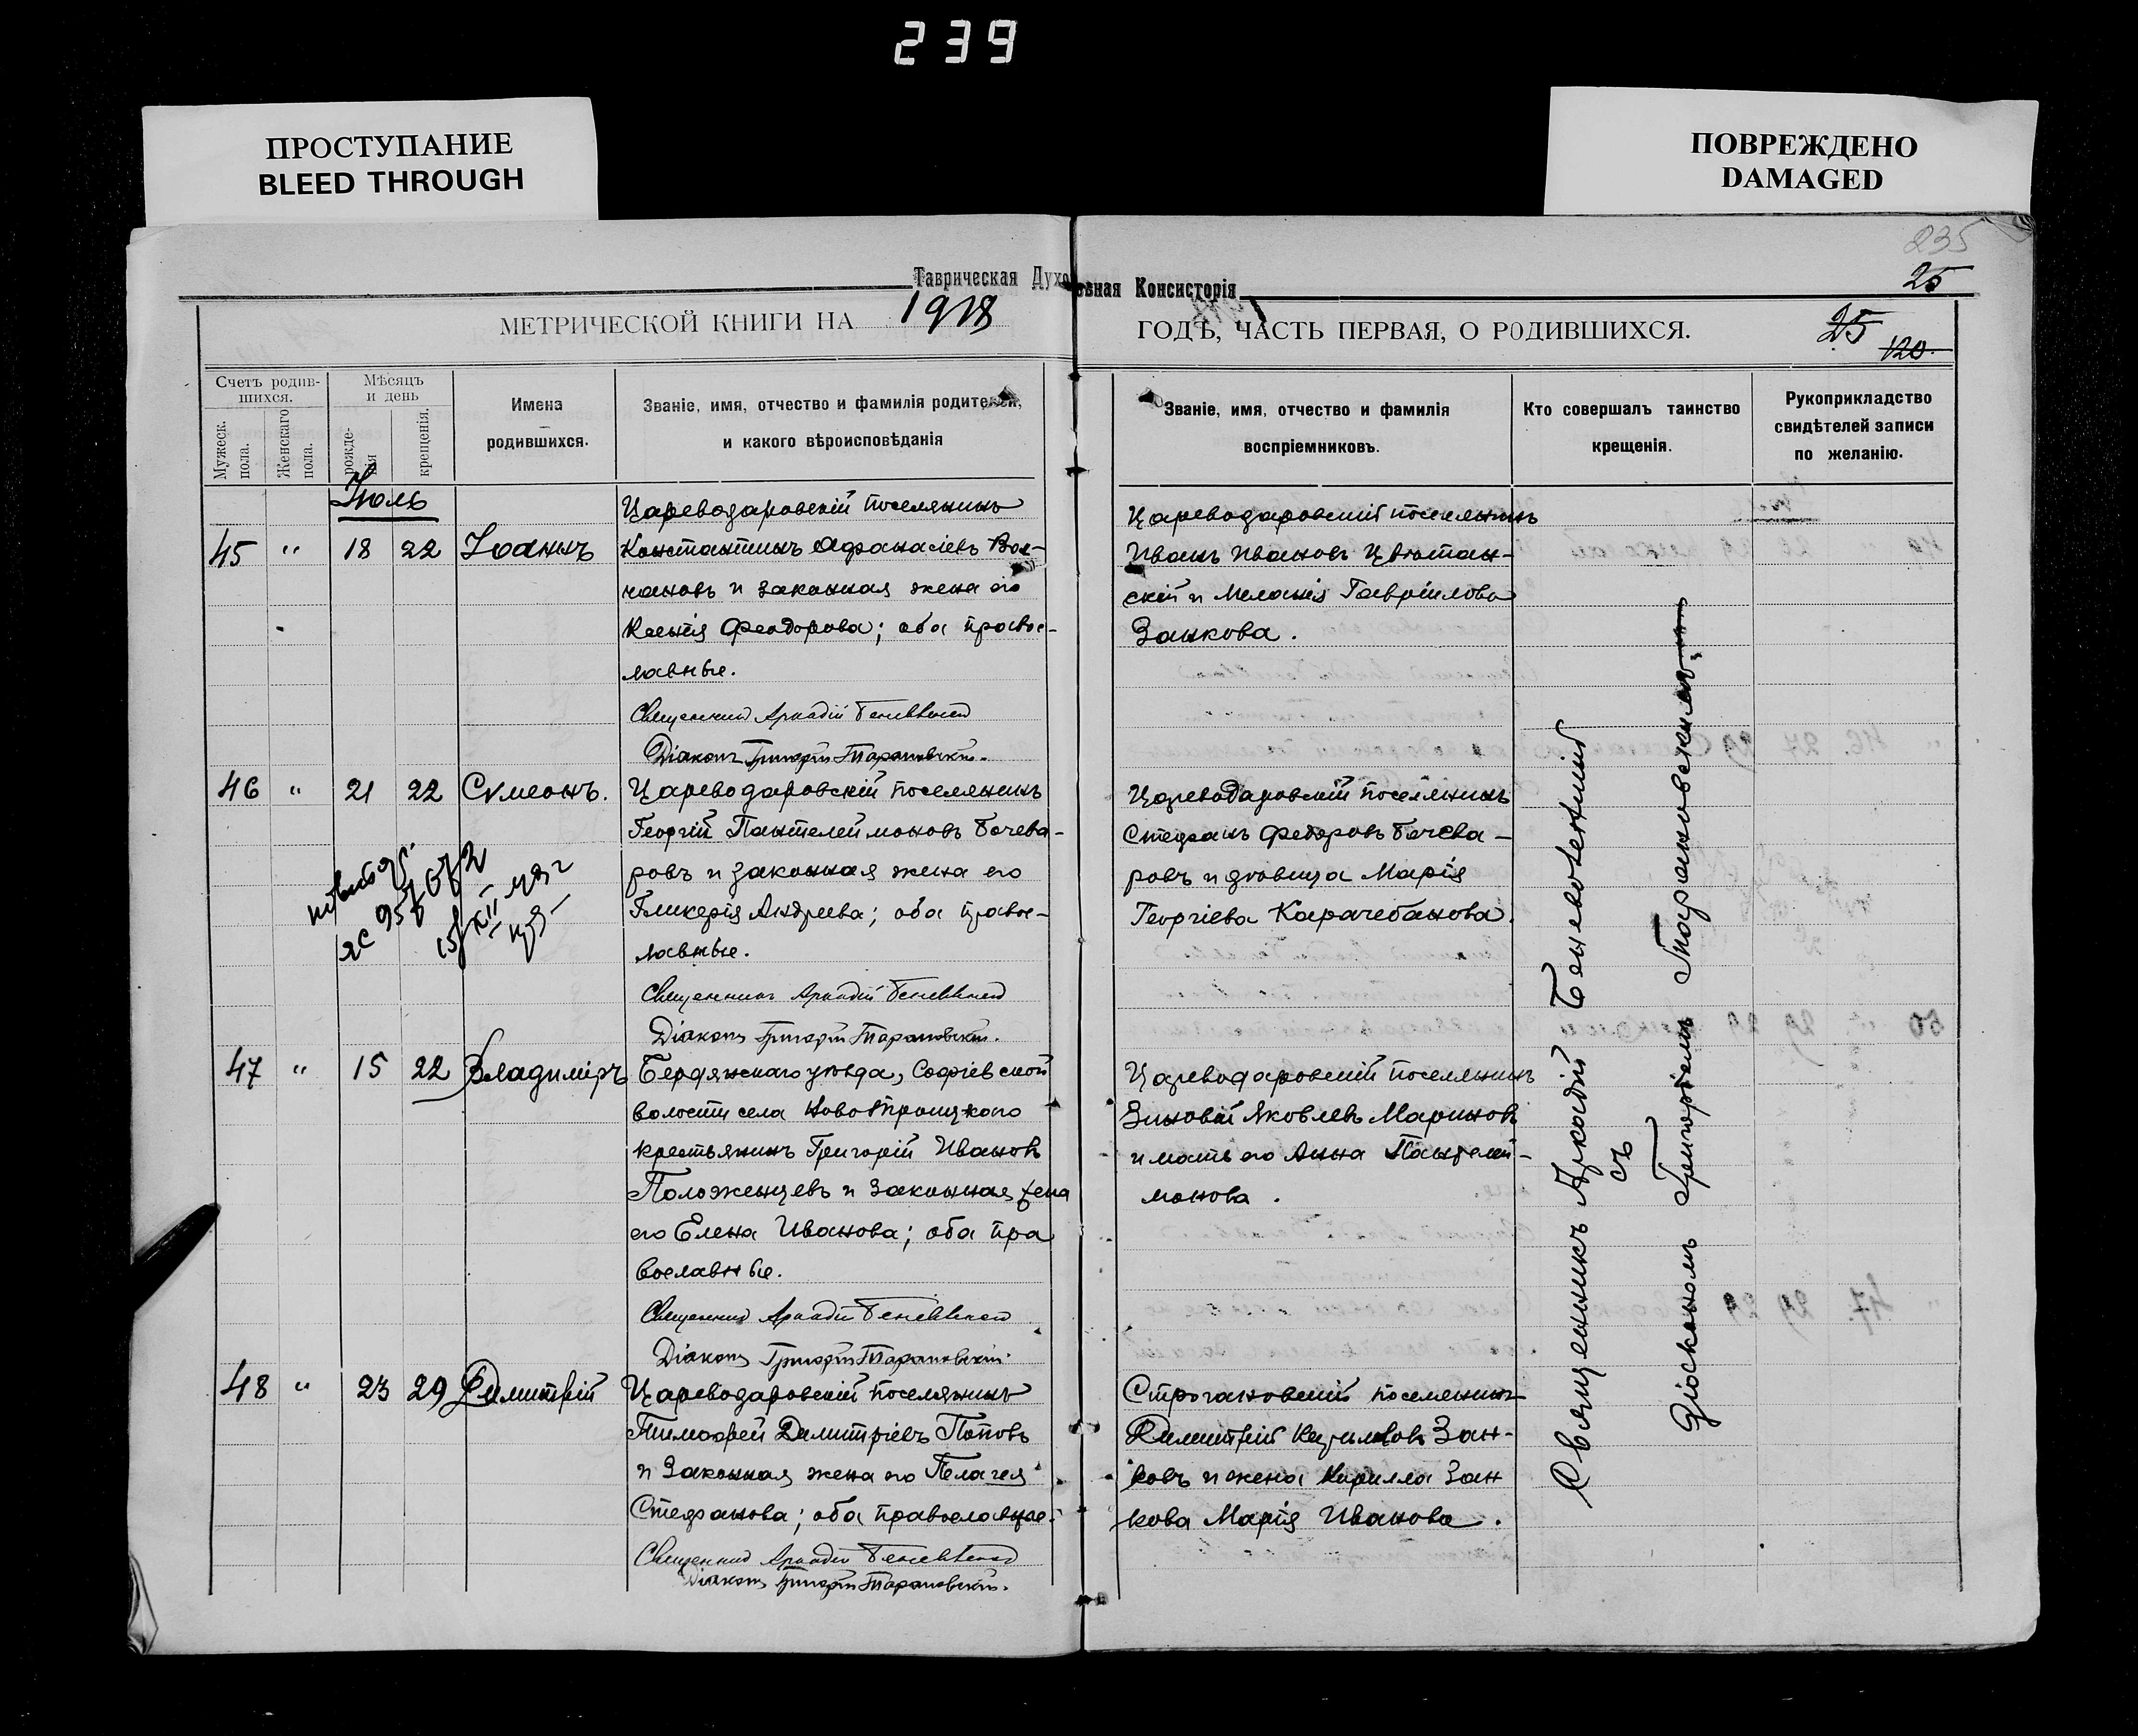 239
ПРОСТУПАНИЕ
BLEED THROUGH
ПОВРЕЖДЕНО
DAMAGED
235
25
Таврическая Духовная Консисторія
МЕТРИЧЕСКОЙ КНИГИ НА 1918
ГОДЪ, ЧАСТЬ ПЕРВАЯ, О РОДИВШИХСЯ.
25
120
Счетъ родив-
шихся.
Мужеск. пола.
Женскаго пола.
Мѣсяцъ
и день
рожде-
нія
крещенія.
Имена
родившихся.
Званіе, имя, отчество и фамилія родителей,
и какого вѣроисповѣданія
Званіе, имя, отчество и фамилія
воспріемниковъ.
Кто совершалъ таинство
крещенія.
Рукоприкладство
свидѣтелей записи
по желанію.
Іюль
45 " 18 22 Іоаннъ
Цареводаровскій поселянинъ
Константинъ Афанасіевъ Вол-
чановъ и законная жена его
Ксенія Феодорова; оба правос-
лавные.
Священникъ Аркадій
Діаконъ Григорій Тарановскій.
Цареводаровскій поселянинъ
Иванъ Ивановъ Цвѣтан-
скій и Меланія Гавріилова
Занкова.
46 " 21 22 Сѵмеонъ.
Цареводаровскій поселянинъ
Георгій Пантелеймоновъ Бочева-
ровъ и законная жена его
Гликерія Андреева; оба правос-
лавные.
Священникъ Аркадій
Діаконъ Григорій Тарановскій.
Цареводаровскій поселянинъ
Стефанъ Федоровъ Бочева-
ровъ и вдовица Марія
Георгіева Карачебанова.
47 " 15 22 Владиміръ
Бердянскаго уѣзда, Софіевской
волости села Новотроицкаго
крестьянинъ Григорій Ивановъ
Положенцевъ и законная жена
его Елена Иванова; оба пра
вославные.
Священникъ Аркадій
Діаконъ Григорій Тарановскій.
Цареводаровскій поселянинъ
Зиновій Яковлевъ Мариновъ
и мать его Анна Пантелей-
монова.
48 " 23 29 Димитрій
Цареводаровскій поселянинъ
Тимофей Димитріевъ Поповъ
и законная жена его Пелагея
Стефанова; оба православные.
Священникъ Аркадій
Діаконъ Григорій Тарановскій.
Строгановскій поселянинъ
Димитрій Кириловъ Зан-
ковъ и жена Кирилла Зан
кова Марія Иванова.
Священникъ Аркадій
съ
Діакономъ Григоріемъ Тарановскимъ